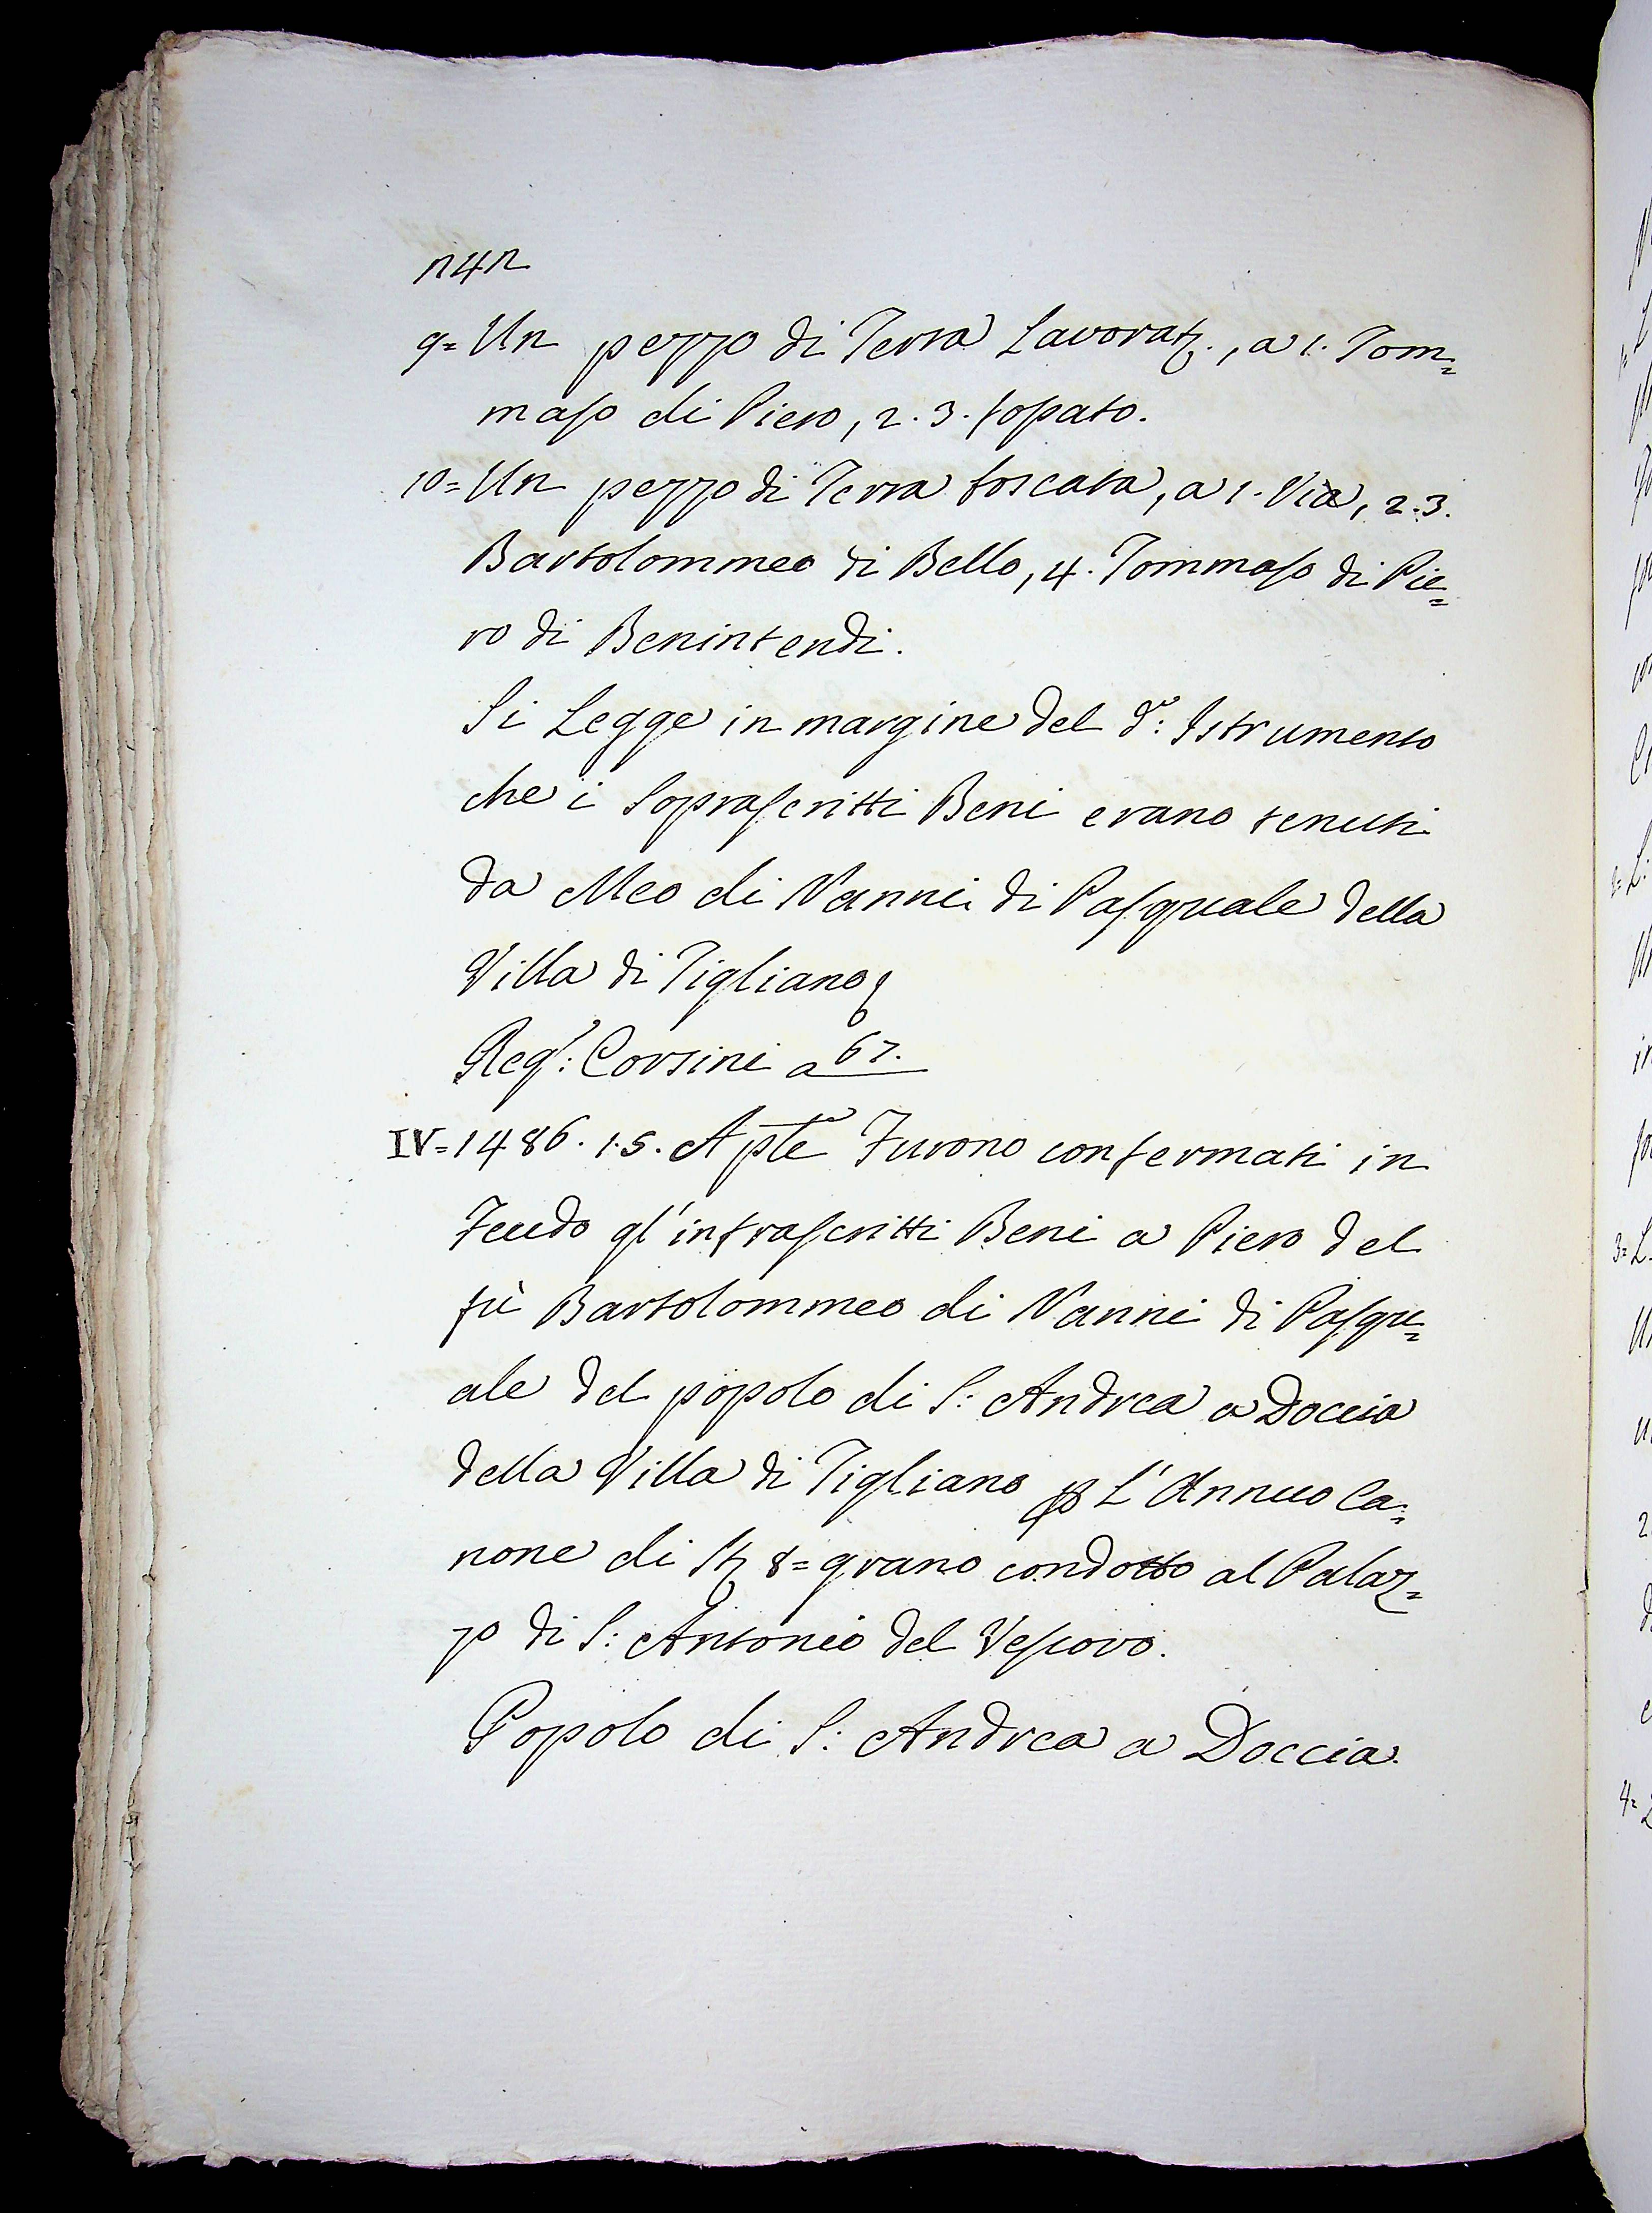 n4n
9= Un pezzo di Terra Lavorat., a 1. Tom=
maso di Piero, 2. 3. fossato.
10= Un pezzo di Terra boscata, a 1. Via, 2. 3.
Bartolommeo di Bello, 4. Tommaso di Pie=
ro di Benintendi.
Si Legge in margine del d.º: Istrumento
che i Soprascritti Beni erano tenuti
da Meo di Nanni di Pasquale della
Villa di Tigliano
Reg.: Corsini a 67.
IV= 1486. 15. Aple Furono confermati in
Feudo gl'infrascritti Beni a Piero del
fù Bartolommeo di Nanni di Pasqu=
ale del popolo di S: Andrea a Doccia
della Villa di Tigliano p L'Annuo Ca=
none di St 8= grano condotto al Palaz=
zo di S: Antonio del Vescovo.
Popolo di S: Andrea a Doccia.